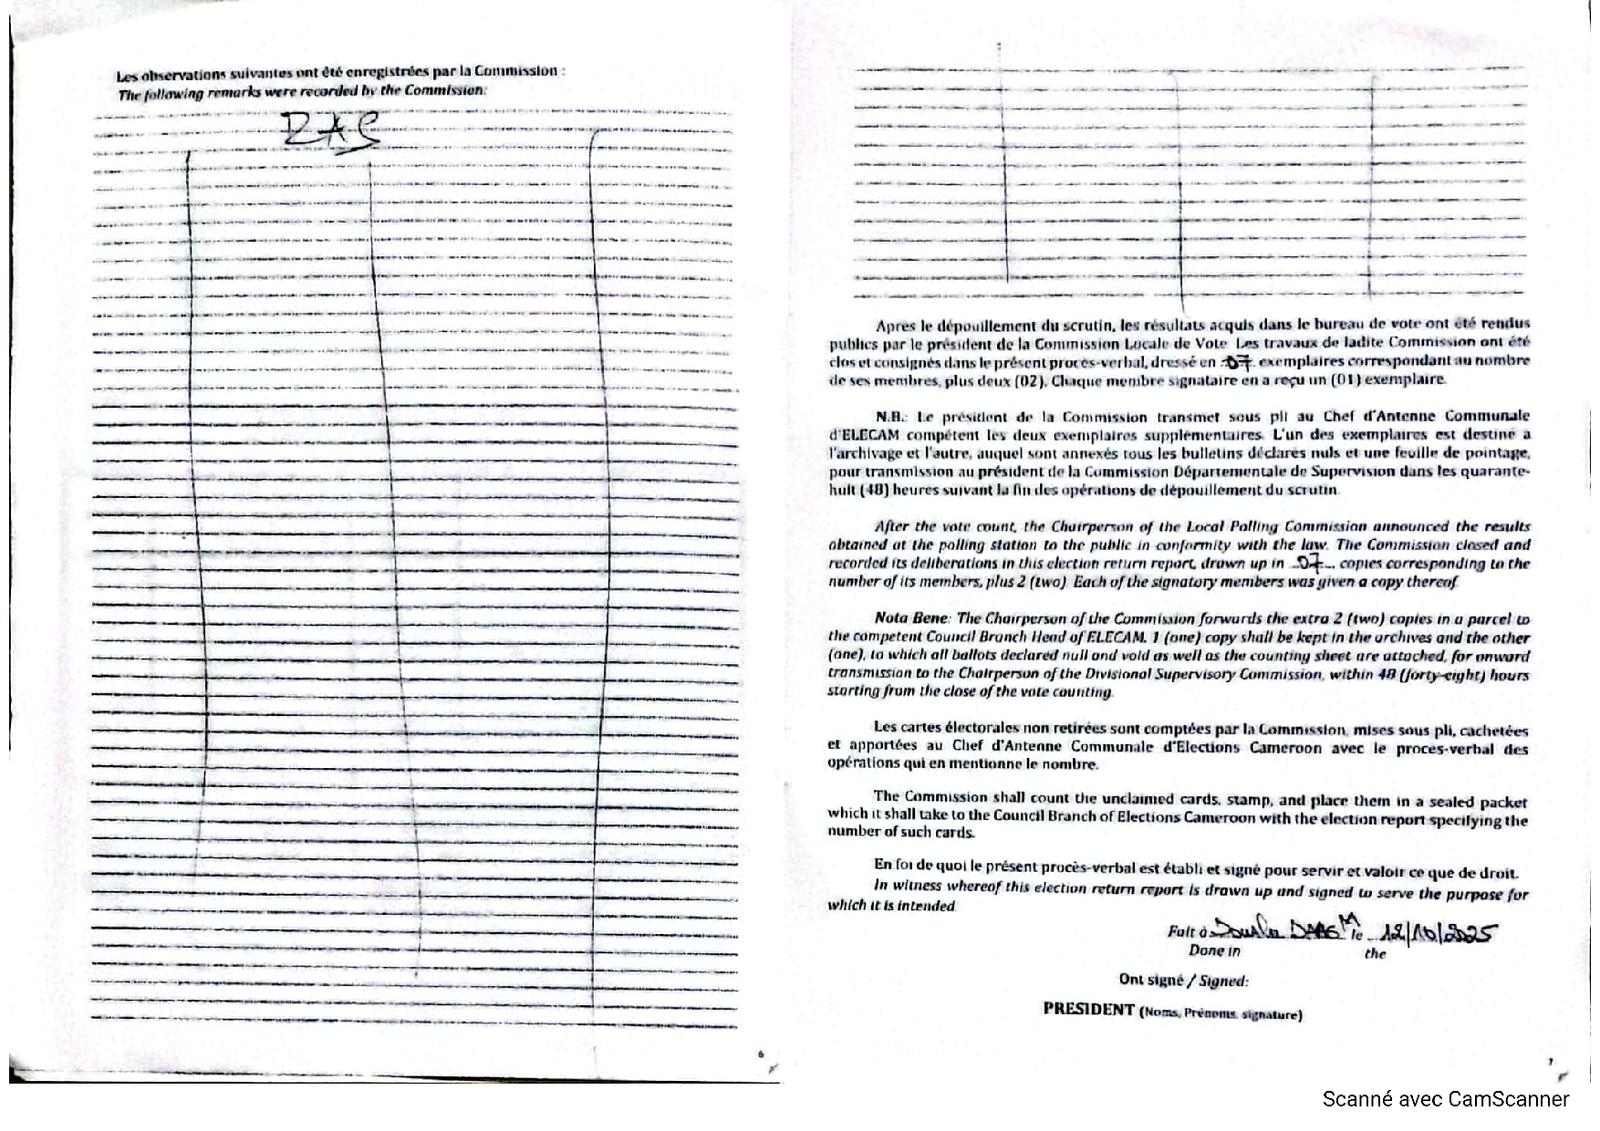 Les observations suivantes ont été enregistrées par la Commission :
The following remarks were recorded by the Commission:
RAS
6
Après le dépouillement du scrutin, les résultats acquis dans le bureau de vote ont été rendus
publics par le président de la Commission Locale de Vote. Les travaux de ladite Commission ont été
clos et consignés dans le présent procès-verbal, dressé en 07 exemplaires correspondant au nombre
de ses membres, plus deux (02). Chaque membre signataire en a reçu un (01) exemplaire.
N.B.: Le président de la Commission transmet sous pli au Chef d'Antenne Communale
d'ELECAM compétent les deux exemplaires supplémentaires. L'un des exemplaires est destiné à
l'archivage et l'autre, auquel sont annexés tous les bulletins déclarés nuls et une feuille de pointage,
pour transmission au président de la Commission Départementale de Supervision dans les quarante-
huit (48) heures suivant la fin des opérations de dépouillement du scrutin.
After the vote count, the Chairperson of the Local Polling Commission announced the results
obtained at the polling station to the public in conformity with the law. The Commission closed and
recorded its deliberations in this election return report, drawn up in 07 copies corresponding to the
number of its members, plus 2 (two). Each of the signatory members was given a copy thereof.
Nota Bene: The Chairperson of the Commission forwards the extra 2 (two) copies in a parcel to
the competent Council Branch Head of ELECAM. 1 (one) copy shall be kept in the archives and the other
(one), to which all ballots declared null and void as well as the counting sheet are attached, for onward
transmission to the Chairperson of the Divisional Supervisory Commission, within 48 (forty-eight) hours
starting from the close of the vote counting.
Les cartes électorales non retirées sont comptées par la Commission, mises sous pli, cachetées
et apportées au Chef d'Antenne Communale d'Elections Cameroon avec le procès-verbal des
opérations qui en mentionne le nombre.
The Commission shall count the unclaimed cards, stamp, and place them in a sealed packet
which it shall take to the Council Branch of Elections Cameroon with the election report specifying the
number of such cards.
En foi de quoi le présent procès-verbal est établi et signé pour servir et valoir ce que de droit.
In witness whereof this election return report is drawn up and signed to serve the purpose for
which it is intended
Fait à Douala le 12/10/2025
Done in the
Ont signé / Signed:
PRESIDENT (Noms, Prénoms, signature)
7
Scanné avec CamScanner